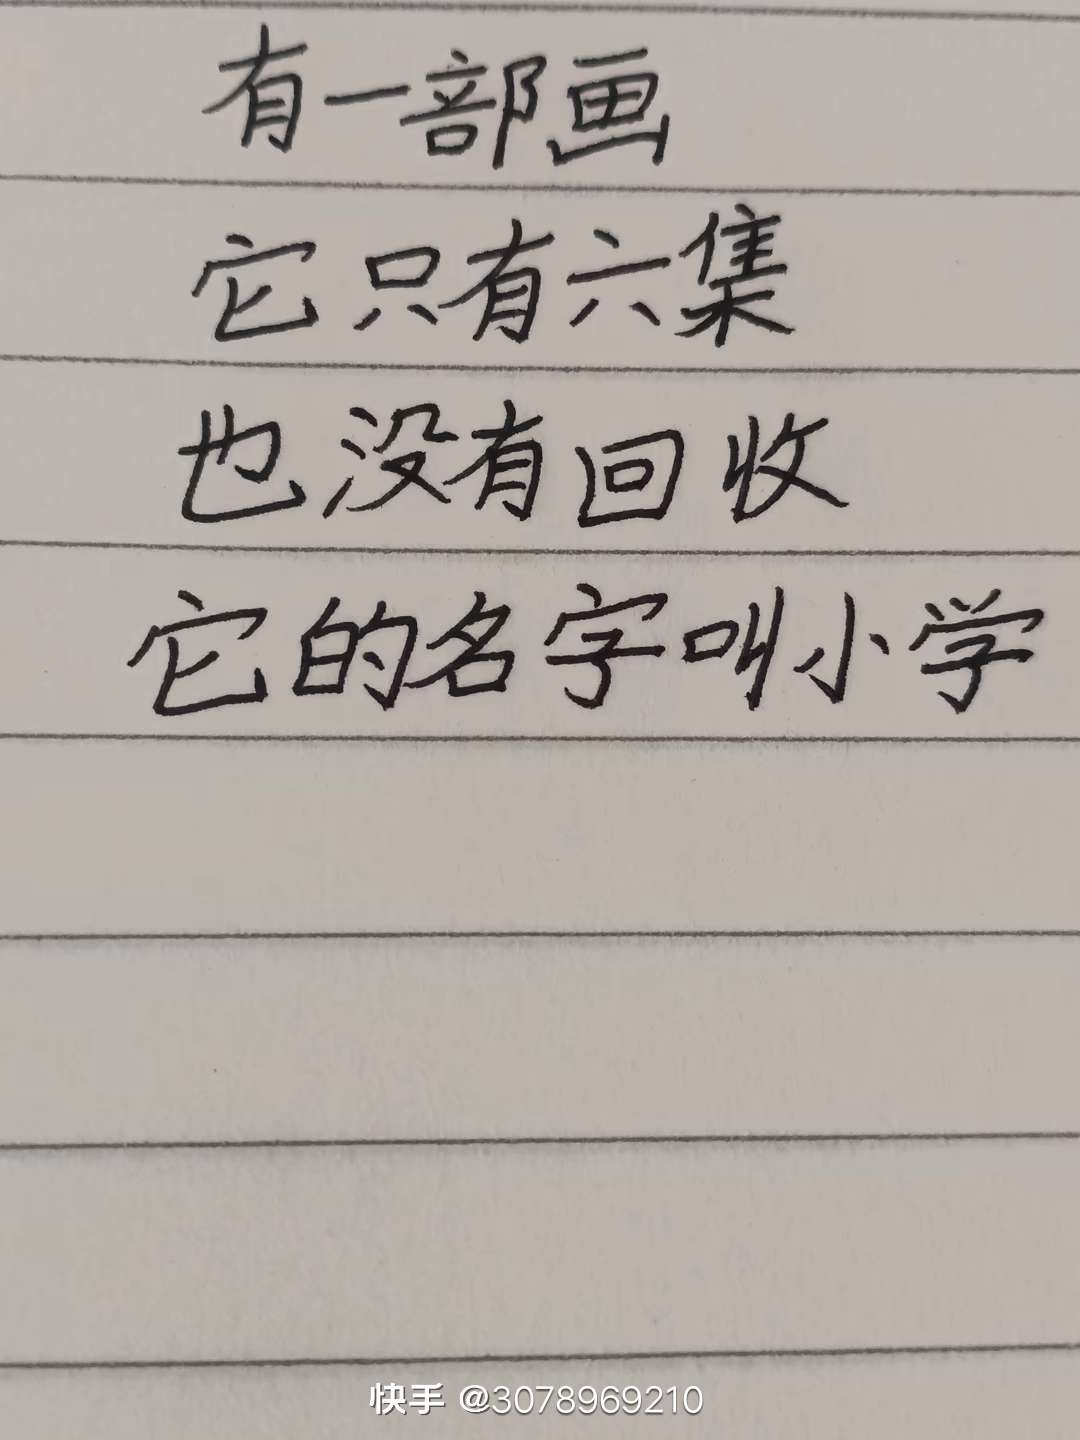 有一部画
它只有六集
也没有回收
它的名字叫小学
快手 @3078969210